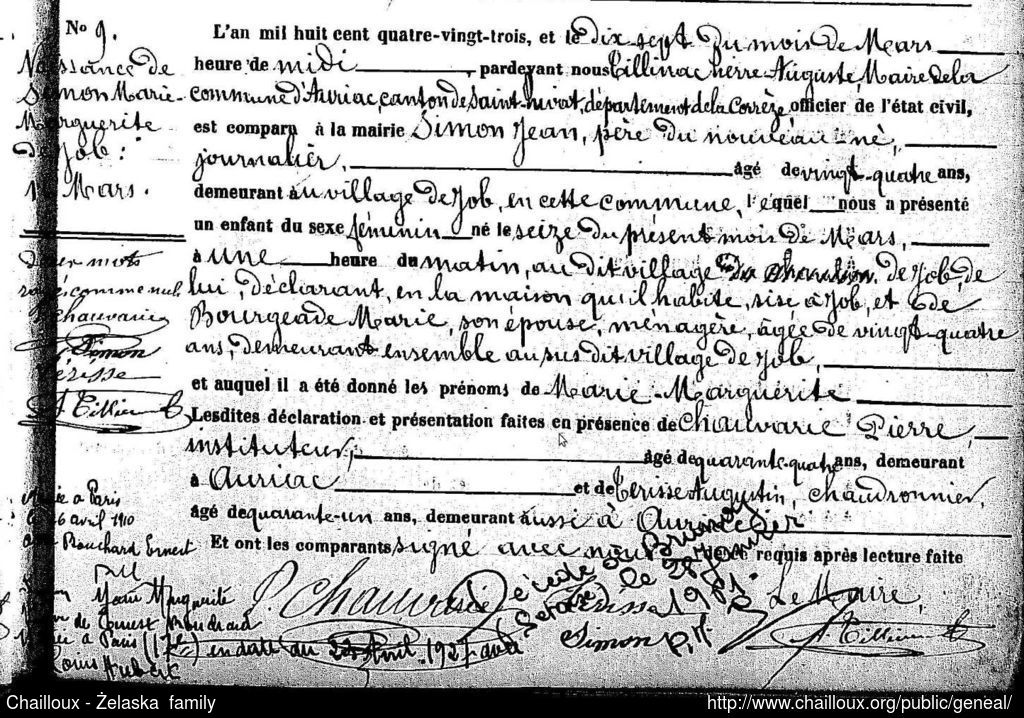 No 9.
Naissance de
Simon Marie-
Marguerite
de Job:
Mars.
L'an mil huit cent quatre-vingt-trois, et le dix sept du mois de Mars
heure de midi, pardevant nous Tillinac Pierre Auguste, Maire de la
commune d'Auriac, canton de Saint-Privat, département de la Corrèze officier de l'état civil,
est comparu à la mairie Simon Jean, père du nouveau-né,
journalier, âgé de vingt-quatre ans,
demeurant au village de Job, en cette commune, lequel nous a présenté
un enfant du sexe féminin né le seize du présent mois de Mars,
à une heure du matin, au dit village de Job, de
lui, déclarant, en la maison qu'il habite, sise à Job, et de
Bourgeade Marie, son épouse, ménagère, âgée de vingt-quatre
ans, demeurant ensemble au sus dit village de Job,
et auquel il a été donné les prénoms de Marie-Marguerite
Lesdites déclaration et présentation faites en présence de Chauvarie Pierre,
instituteur, âgé de quarante-quatre ans, demeurant
à Auriac et de Terisse Augustin, chaudronnier,
âgé de quarante-un ans, demeurant aussi à Auriac
Et ont les comparants signé avec nous requis après lecture faite
mots
rayés comme nuls
Chauvarie
Simon
Terisse
A. Tillinac
à Paris
6 avril 1910
Bouchard Ernest
P. Chauvarie
Terisse
Simon
Le Maire,
A. Tillinac
Décédée à Brunoy
le 28 janvier
1981.
Marie Marguerite
de Ernest Bouchard
à Paris (17e) en date du Avril 1927 avec
Louis Aubert
Chailloux - Żelaska family
http://www.chailloux.org/public/geneal/